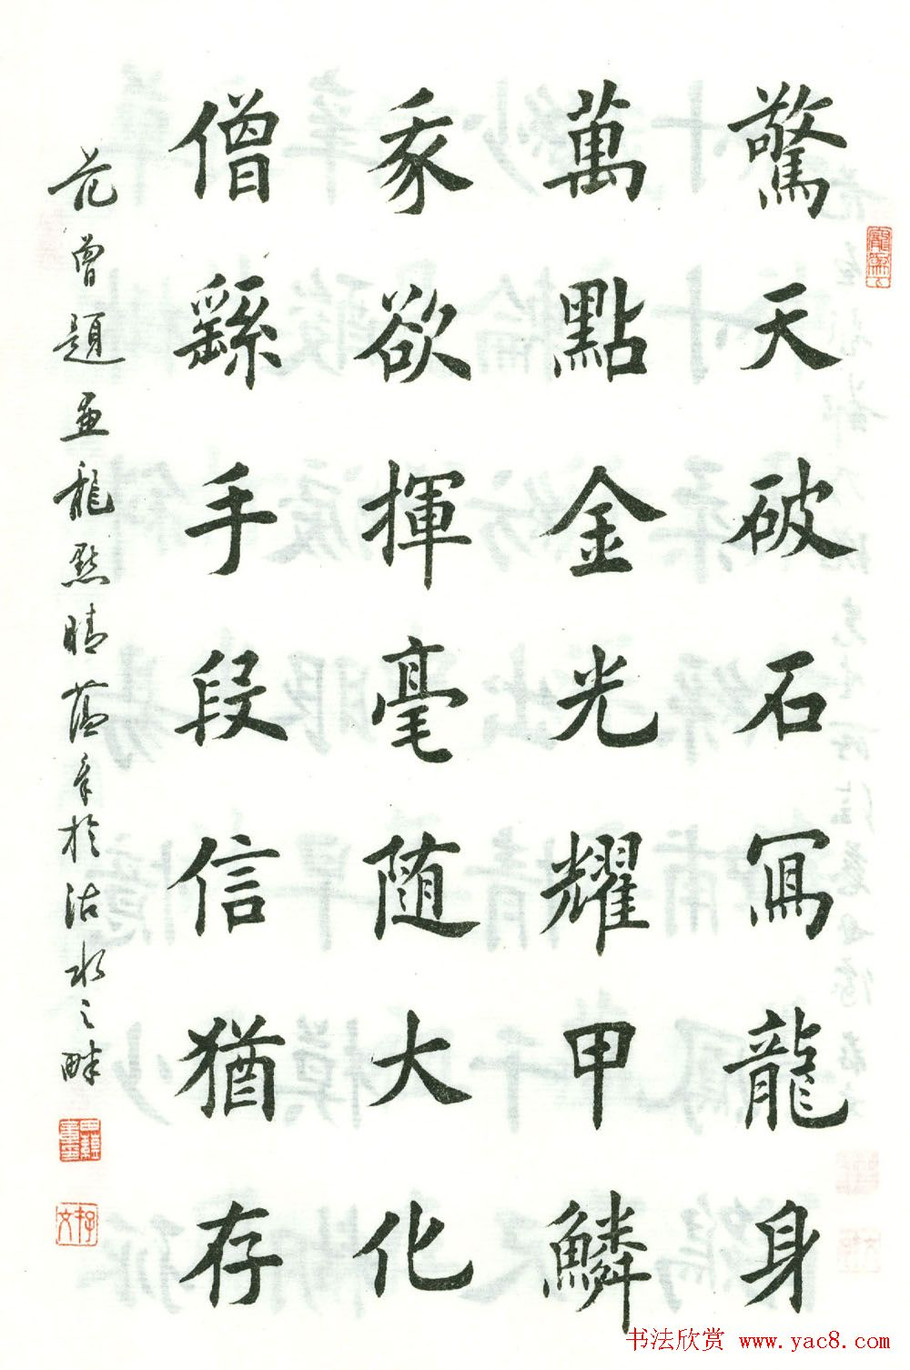 驚天破石寫龍身
萬點金光耀甲鱗
我欲揮毫随大化
僧繇手段信猶存
范曾題画龍點睛於沽水之畔
书法欣赏 www.yac8.com